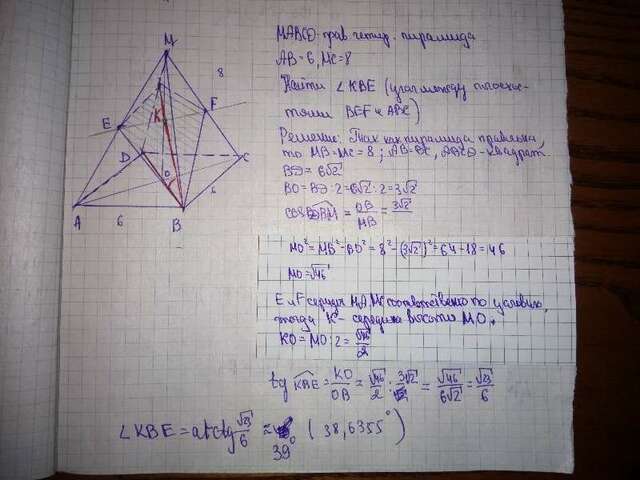 M
8
E
F
K
D
C
O
A
6
B
6
MABCD-прав. четыр. пирамида
AB=6, MC=8
Найти ∠KBE (угол между плоскос-
тями BEF и ABC)
Решение: Так как пирамида правильна,
то MB=MC=8; AB=BC, ABCD-квадрат,
BD=6√2
BO=BD:2=6√2:2=3√2
= OB/MB = 3√2
MO²=MB²-BO²=8²-(3√2)²=64-18=46
MO=√46
E и F середи MA, MC соответственно по условию,
тогда K - середина высоты MO,
KO=MO:2=√46/2
tg KBE = KO/OB = √46/2 : 3√2 = √46/6√2 = √23/6
∠KBE = arctg √23/6 ≈ 39° (38,6355°)